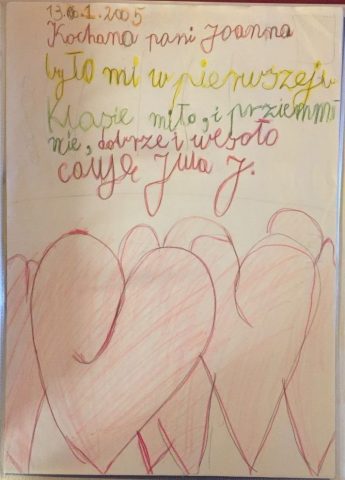 13.01.2005
Kochana pani Joanna
było mi w pierwszej
klasie miło, i prziemm
nie, dobrze i wesoło
całuję Jula J.